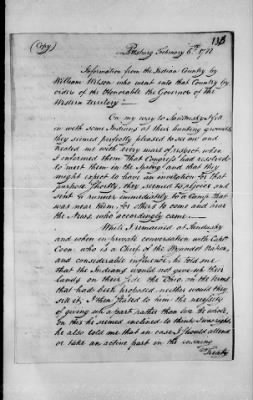 (Copy)
Pittsburg February 6th 1788
Information from the Indian Country by
William Wilson who went into that Country by
orders of the Honorable the Governor of the
Western territory—
On my way to Sandusky I fell
in with some Indians at their hunting ground,
they seemed perfectly pleased to see me and
treated me with every mark of respect when
I informed them that Congress had resolved
to meet them in the Spring and that they
might expect to have an invitation for that
purpose shortly, they seemed to rejoice and
sent a runner immediately to a Camp that
was near them, for others to come and hear
the News, who accordingly came.—
While I remained at Sandusky
and when in private conversation with Capt
Coon, who is a Chief of the Wyandot Nation,
and considerable influence, he told me
that the Indians would not give up their
lands on their side the Ohio, on the terms
that had been proposed, neither would they
sell it, I then stated to him the necessity
of giving up a part rather than lose the whole,
On this he seemed inclined to think I was right,
he also told me that in case I should attend
or take an active part in the ensuing
Treaty